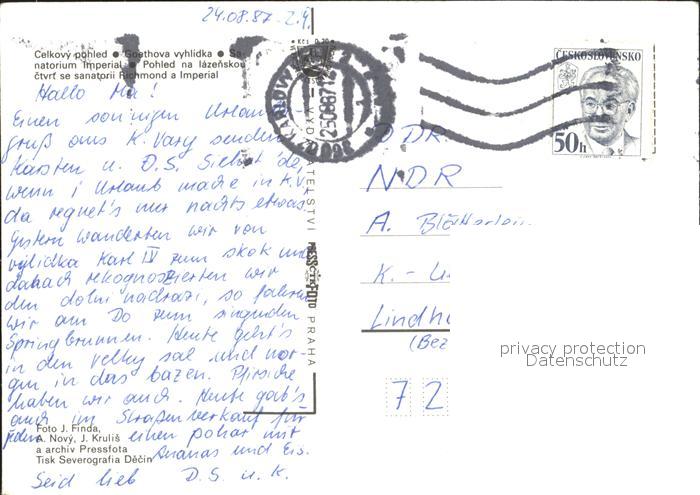 24.08.87
Celkový pohled ● Goethova vyhlídka ● Sa-
natorium Imperial ● Pohled na lázeňskou
čtvrť se sanatorii Richmond a Imperial
Hallo Ma!
Einen sonnigen Urlaubs
gruß aus K. Vary senden
Karsten u. D.S. Siehst de,
wenn i Urlaub mache in K.V.
da regnet's nur nachts etwas.
Gestern wanderten wir von
vylidka Karl IV zum skok und
danach rekognoszierten wir
den dolni nadrazi, so fahren
wir am Do zum singenden
Springbrunnen. Heute geht's
in den velky sal und mor-
gen in das bazen. Pfirsiche
haben wir auch. Heute gab's
auch im Straßenverkauf für
jeden einen pohar mit
Ananas und Eis.
Seid lieb D.S. u. K.
Foto J. Finda,
A. Nový, J. Kruliš
a archiv Pressfota
Tisk Severografia Děčín
PRESSFOTO PRAHA
25.08.87
ČESKOSLOVENSKO
50h
DDR
NDR
A.
K. -
Lindh
(Bez
72
privacy protection
Datenschutz